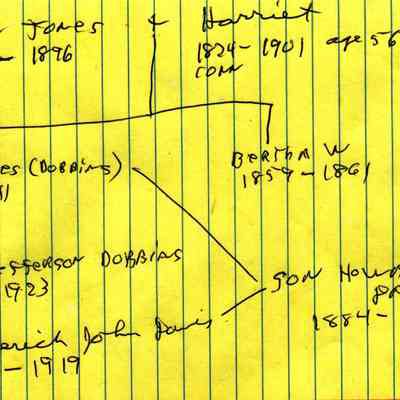 Jones & Harriet
- 1896 1834 - 1901 age 56
CONN
es (DOBBINS) BERTHA W
1859 - 1861
efferson DOBBINS
1923 SON HOWA
1884 -
erick John Davis
- 1919